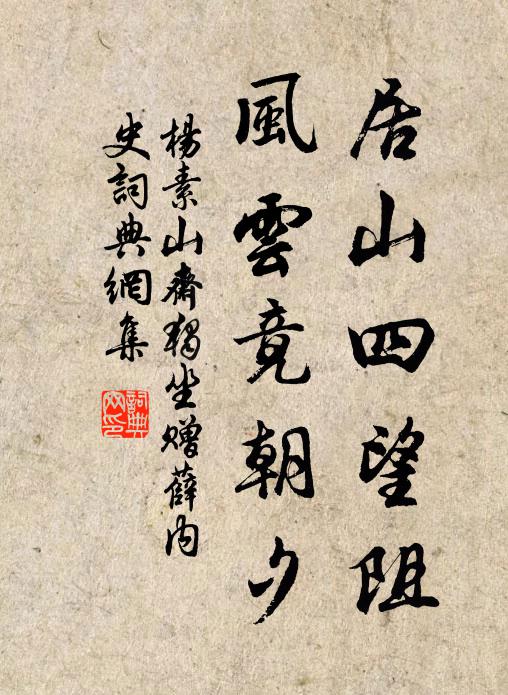 居山四望阻
風雲竟朝夕
楊素山齋獨坐贈薛內
史詞典網集
詞典
网印